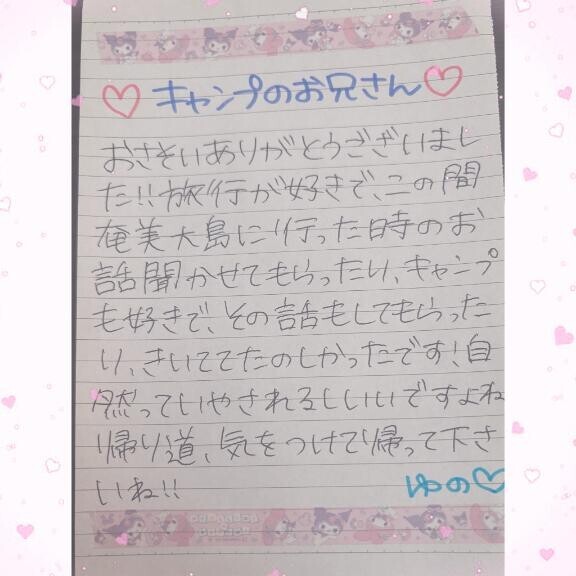 キャンプのお兄さん
おさそいありがとうございまし
た!!旅行が好きで、この間
奄美大島に行った時のお
話聞かせてもらったり、キャンプ
も好きで、その話もしてもらった
り、きいててたのしかったです!自
然っていやされるしいいですよね
帰り道、気をつけて帰って下さ
いね!!
ゆの